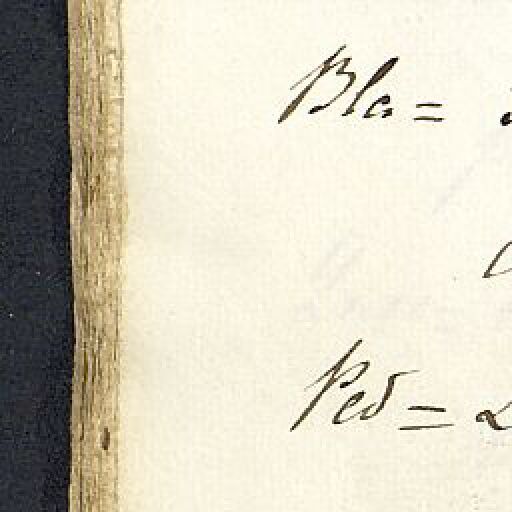 Bla=
Ped=